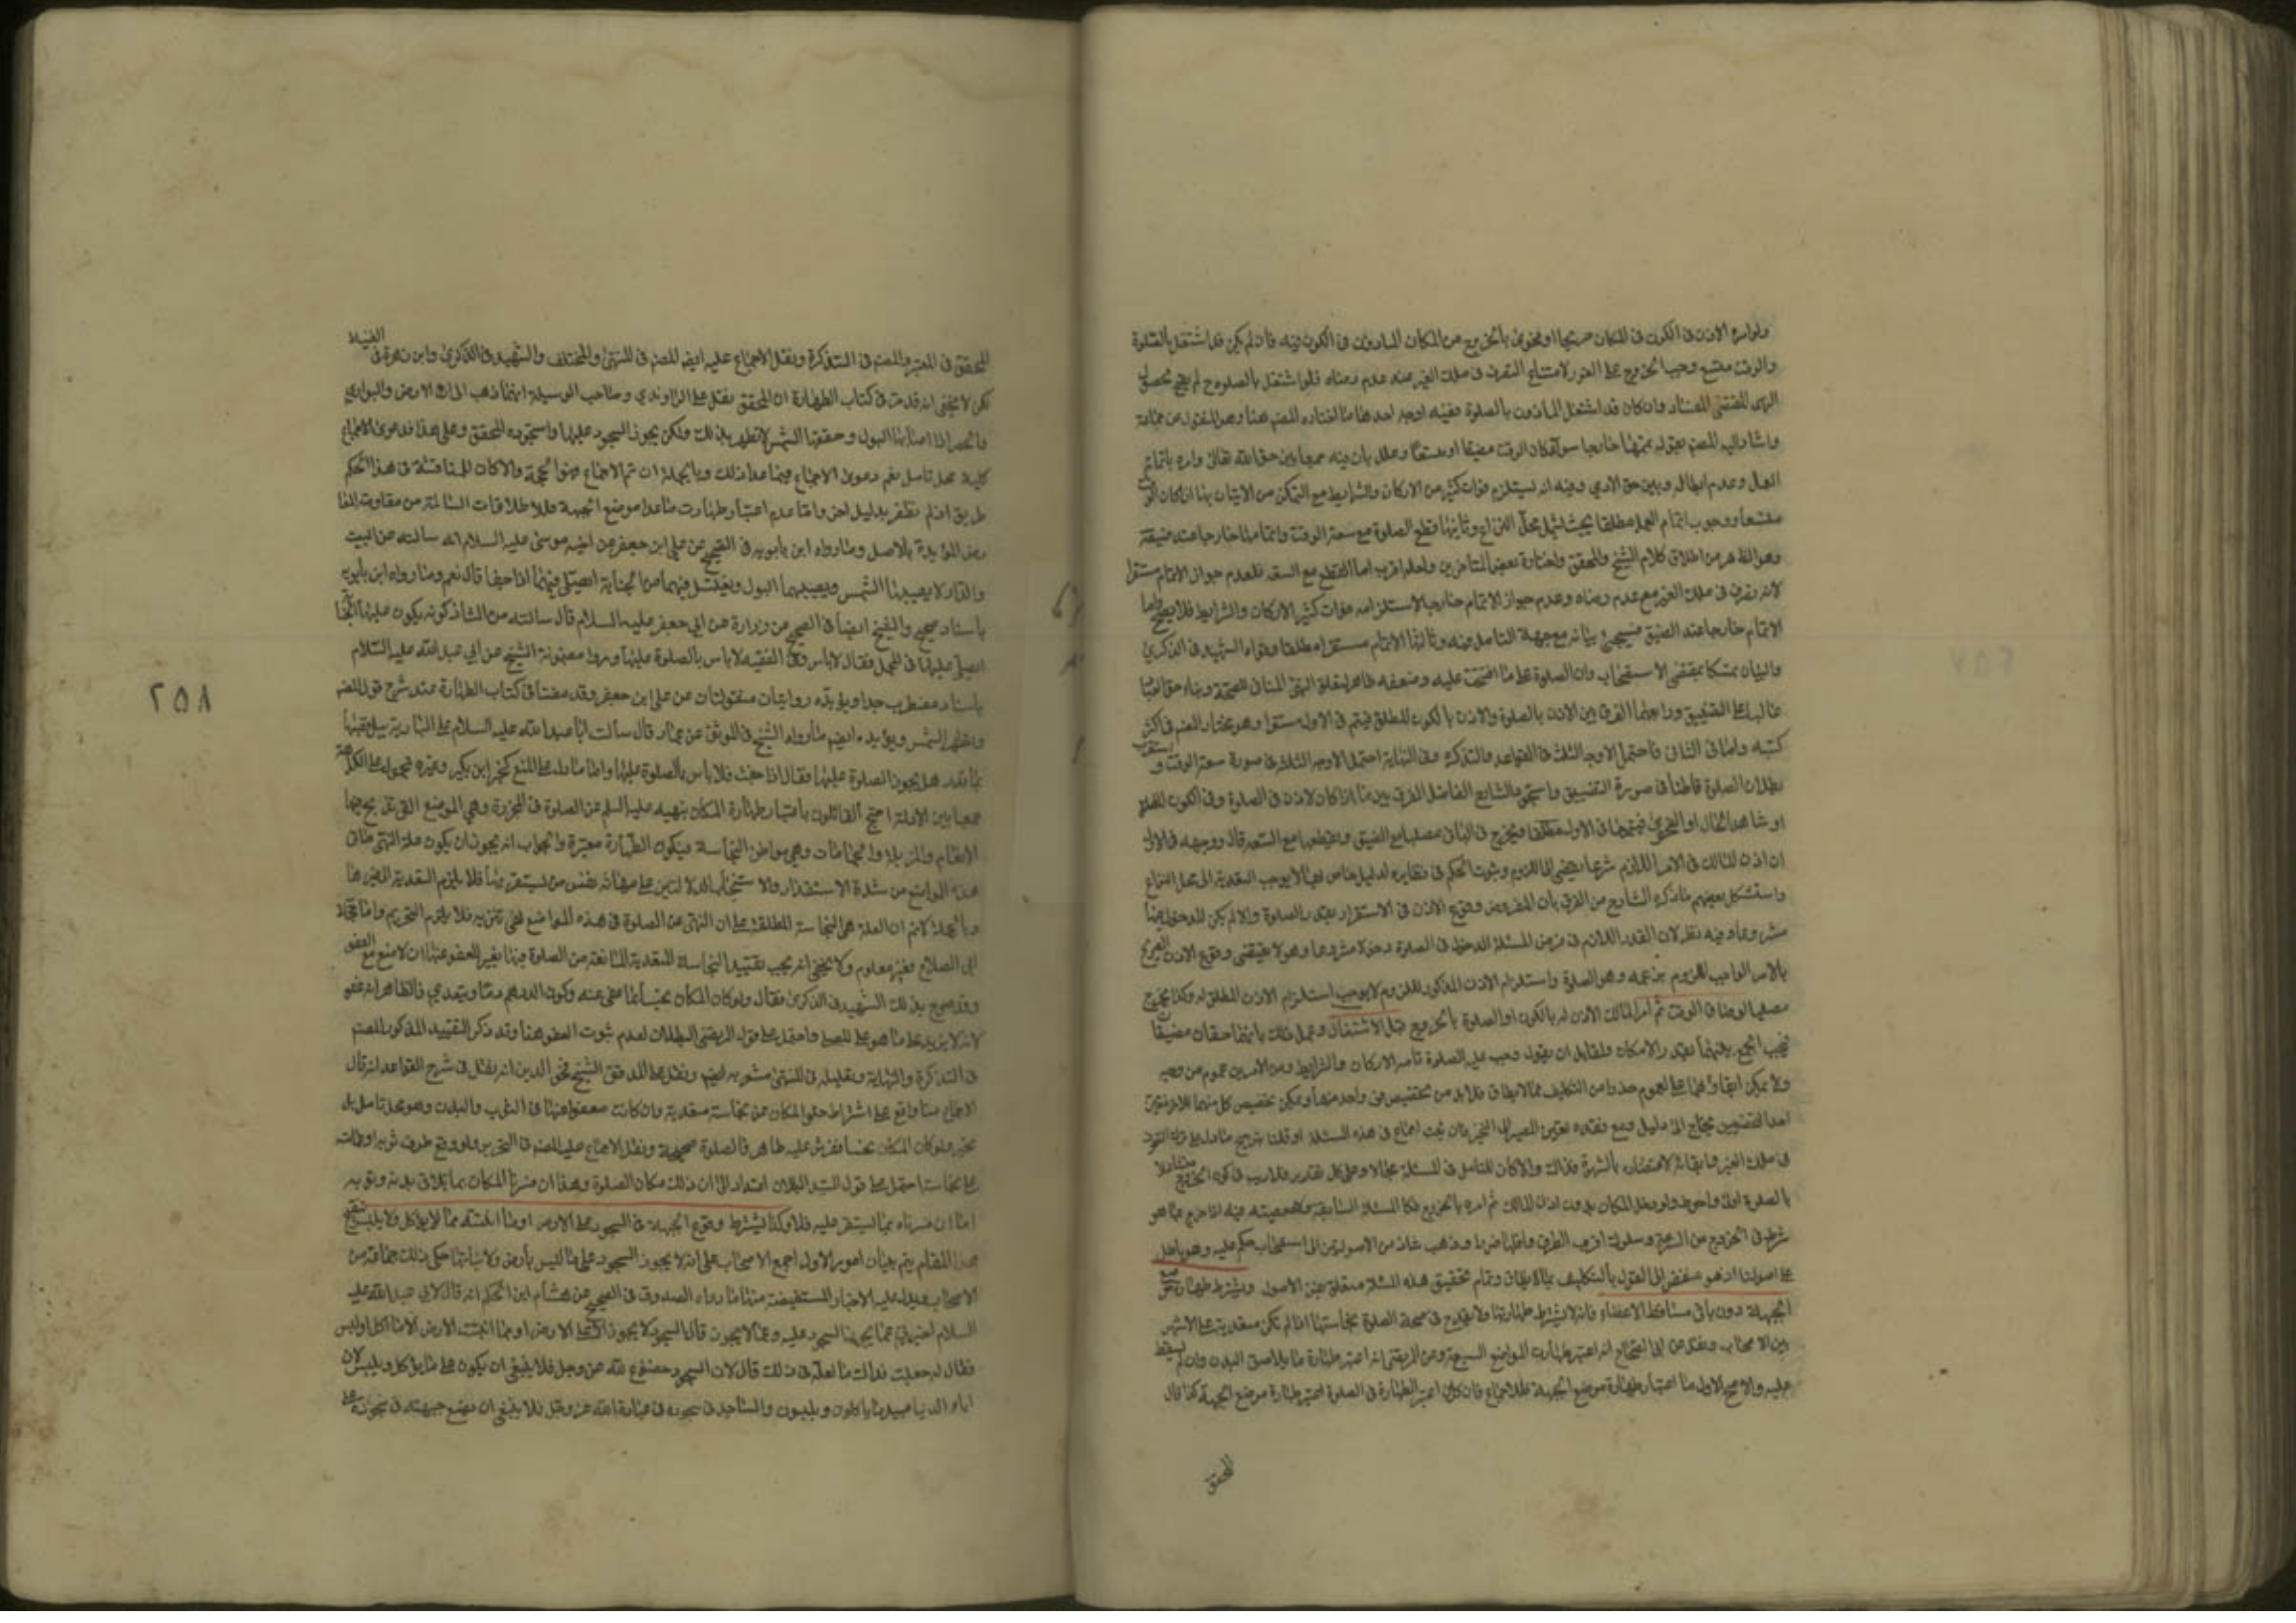 ولو امره الاذن فى الكون فى المكان صريحا او فحوى بالخروج من المكان الماذون فى الكون فيه فان لم يكن قد اشتغل بالصلوة
والوقت متسع وجب الخروج على الفور لامتناع التصرف فى ملك الغير عند عدم رضاه فلو اشتغل بالصلوة ح لم يصح لحصول
النهى المقتضى للفساد وان كان قد اشتغل الماذون بالصلوة ففيه اوجه احدها ما اختاره المصنف هنا وهو المنقول عن جماعة
واشار اليه المصنف بقوله يتمها خارجا سواء كان الوقت مضيقا او متسعا وعلل بان فيه جمعا بين حق الله تعالى وامره باتمام
العمل وعدم ابطاله وبين حق الادمي وفيه انه يستلزم فوات كثير من الاركان والشرايط مع التمكن من الاتيان بها ان كان الوقت
متسعا ووجوب اتمام العمل مطلقا بحيث يشمل محل النزاع وثانيها قطع الصلوة مع سعة الوقت واتمامها خارجا عند ضيقه
وهو الظاهر من اطلاق كلام الشيخ والمحقق واختاره بعض المتاخرين ولعله اقرب اما القطع مع السعة فلعدم جواز الاتمام مستقرا
لانه تصرف فى ملك الغير مع عدم رضاه وعدم جواز الاتمام خارجا لاستلزامه فوات كثير الاركان والشرايط فلا يصح واما
الاتمام خارجا عند الضيق فسيجئ بيانه مع جهة التامل فيه وثالثها الاتمام مستقرا مطلقا وقواه الشهيد فى الذكرى
والبيان تمسكا بمقتضى الاستصحاب وان الصلوة على ما افتتحت عليه وضعفه ظاهر لتعلق النهى المنافى للصحة وبناء حق العباد
غالبا على التضييق ورابعها الفرق بين الاذن بالصلوة والاذن بالكون المطلق فيتم فى الاول مستقرا وهو مختار المصنف فى اكثر
كتبه واما فى الثانى فاحتمل الاوجه الثلث فى القواعد والتذكرة وفى النهاية احتمل الاوجه الثلثة فى صورة سعة الوقت و استقرب
بطلان الصلوة قاطعا فى صورة التضييق واستجود الشارح الفاضل الفرق بين ما اذا كان الاذن فى الصلوة وفى الكون المطلق
او شاهد الحال او الفحوى فيتمها فى الاول مطلقا ويخرج فى الثانى مصليا مع الضيق ويقطعها مع السعة قال ووجهه فى الاول
ان اذن المالك فى الامر اللازم شرعا يفضى الى اللزوم وثبوت الحكم فى نظايره لدليل خاص بها لا يوجب التعدية الى محل النزاع
واستشكل بعضهم ما ذكره الشارح من الفرق بان المفروض وقوع الاذن فى الاستقرار بقدر الصلوة والا لم يكن الدخول فيها
مشروعا وفيه نظر لان القدر اللازم فى فرض المسئلة الدخول فى الصلوة دخولا مشروعا وهو لا يقتضى وقوع الاذن الصريح
بالامر الواجب اللزوم بزعمه وهو الصلوة واستلزام الاذن المذكور اللزوم لا يوجب استلزام الاذن المطلق له وكذا يخرج
مصليا لو ضاق الوقت ثم امر المالك الاذن له بالكون او الصلوة بالخروج قبل الاشتغال وعلل ذلك بانهما حقان مضيقان
فيجب الجمع بينهما بقدر الامكان ولقايل ان يقول وجب عليه الصلوة تامه الاركان والشرايط وبين الامرين عموم من وجه
ولا يمكن ابقاؤهما على العموم حذرا من التكليف بما لا يطاق فلابد من تخصيص فى واحد منهما ويمكن تخصيص كل منهما فالترجيح
احد التخصيصين يحتاج الى دليل ومع فقده تعين المصير الى التخير فان ثبت اجماع فى هذه المسئلة او قلنا بترجيح ما دل على ترك التصرف
فى ملك الغير وابقائه لاعتضاده بالشهرة فذاك والا كان للتامل فى المسئلة مجالا وعلى كل تقدير فلا ريب فى كون الخروج متشاغلا
بالصلوة اولى واحوط ولو دخل المكان بدون اذن المالك ثم امره بالخروج فكالمسئلة السابقة ومعصيته فيه اذا خرج بما هو
شرط فى الخروج من السرعة وسلوك اقرب الطرق واقلها ضررا وذهب شاذ من الاصوليين الى استصحاب حكم عليه وهو باطل
على اصولنا اذ هو مفض الى القول بالتكليف بما لا يطاق وتمام تحقيق هذه المسئلة متعلق بفن الاصول ويشترط طهارة موضع
الجبهة دون باقى مساقط الاعضاء فانه لا يشترط طهارتها ولا يقدح فى صحة الصلوة نجاستها اذا لم تكن متعدية على الاشهر
بين الاصحاب ونقل عن ابى الصلاح انه اعتبر طهارت المواضع السبعة وعن المرتضى انه اعتبر طهارة ما يلاصق البدن وان لم يسقط
عليه والاصح الاول اما اعتبار طهارة موضع الجبهة فللاجماع فان كل من اعتبر الطهارة فى الصلوة اعتبر طهارة موضع الجبهة كذا قال
المحقق
٢٥٨
المحقق فى المعتبر والمصنف فى التذكرة ونقل الاجماع عليه ايضا المصنف فى المنتهى والمختلف والشهيد فى الذكرى وابن زهرة فى الغنية
لكن لا يخفى انه قد مر فى كتاب الطهارة ان المحقق نقل عن الراوندي وصاحب الوسيلة انهما ذهبا الى ان الارض والبواري
والحصر اذا اصابها البول وجففتها الشمس لا تطهر بذلك ولكن يجوز السجود عليها واستجوده المحقق وعلى هذا فدعوى الاجماع
كلية محل تامل نعم دعوى الاجماع فيما عدا ذلك وبالجملة ان تم الاجماع فهو الحجة والا كان للمناقشة فى هذا الحكم
طريق اذ لم نظفر بدليل اخر واما عدم اعتبار طهارت ما عدا موضع الجبهة فللاطلاقات السالمة من مقاومة المعا
رض المؤيدة بالاصل وما رواه ابن بابويه فى الصحيح عن على ابن جعفر عن اخيه موسى عليه السلام انه سالته عن البيت
والدار لا يصيبها الشمس ويصيبهما البول ويغتسل فيهما من الجنابة ايصلى فيهما اذا جفا قال نعم وما رواه ابن بابويه
باسناد صحيح والشيخ ايضا فى الصحيح عن زرارة عن ابى جعفر عليه السلام قال سالته عن الشاذكونه يكون عليها الجنابة
ايصلى عليها فى المحمل فقال لا باس وفى الفقيه لا باس بالصلوة عليها وروا مضمونه الشيخ عن ابى عبد الله عليه السلام
باسناد مضطرب جدا ويؤيده روايتان منقولتان عن على ابن جعفر وقد مضتا فى كتاب الطهارة عند شرح قول المصنف
وتطهر الشمس ويؤيده ايضا ما رواه الشيخ فى الموثق عن عمار قال سالت ابا عبد الله عليه السلام عن البارية يبل قصبها
بماء قذر هل يجوز الصلوة عليها فقال اذا جفت فلا باس بالصلوة عليها واما ما دل على المنع كخبر ابن بكير وغيره فمحمول على الكراهة
جمعا بين الادلة احتج القائلون باعتبار طهارة المكان بنهيه عليه السلم عن الصلوة فى المجزرة وهى المواضع التى تذبح فيها
الانعام والمزبلة والحمامات وهى مواطن النجاسة فيكون الطهارة معتبرة والجواب انه يجوز ان يكون علة النهى ما فى
هذه المواضع من شدة الاستقذار والاستخباث الدالتين على مهانة نفس من يستقر بها فلا يلزم التعدية الى غيرها
وبالجملة لا نسلم ان العلة هى النجاسة المطلقة على ان النهى عن الصلوة فى هذه المواضع نهى تنزيه فلا يلزم التحريم واما حجة
ابى الصلاح فغير معلوم ولا يخفى انه يجب تقييد النجاسة المتعدية المانعة من الصلوة فيها بغير المعفو عنها اذ لا منع مع العفو
وقد صرح بذلك الشهيد فى الذكرى فقال ولو كان المكان نجسا بما عفى عنه كدون الدرهم دما ويتعدي فالظاهر انه عفو
لانه لا يزيد على ما هو على المصلى واحتمل على قول المرتضى البطلان لعدم ثبوت العفو هنا وقد ذكر التقييد المذكور المصنف
فى التذكرة والنهاية وتعليله فى المنتهى مشعر به ايضا ونقل عن المدقق الشيخ فخر الدين انه نقل فى شرح القواعد انه قال
الاجماع منا واقع على اشتراط خلو المكان عن نجاسة متعدية وان كانت معفوا عنها فى الثوب والبدن وهو محل تامل بل
تحير ولو كان المكان نجسا ففرش عليه طاهر فالصلوة صحيحة ونقل الاجماع عليه المصنف فى التحرير ولو وقع طرف ثوبه او طاقته
على نجاسة احتمل على قول السيد البطلان امتداد الى ان ذلك مكان الصلوة وهذا ان فسرنا المكان بما يلاقى بدنه وثوبه
اما ان فسرناه بما يستقر عليه فلا وكذا يشترط وقوع الجبهة فى السجود على الارض او ما انبتته مما لا يؤكل ولا يلبس تنقيح
هذا المقام يتم ببيان امور الاول اجمع الاصحاب على انه لا يجوز السجود على ما ليس بارض ولا نباتها حكى ذلك جماعة من
الاصحاب ويدل عليه الاخبار المستفيضة منها ما رواه الصدوق فى الصحيح عن هشام ابن الحكم انه قال لابى عبد الله عليه
السلام اخبرني عما يجوز السجود عليه وعما لا يجوز قال السجود لا يجوز الا على الارض او ما انبتت الارض الا ما اكل او لبس
فقال له جعلت فداك ما العلة فى ذلك قال لان السجود خضوع لله عز وجل فلا ينبغى ان يكون على ما يؤكل ويلبس لان
ابناء الدنيا عبيد ما ياكلون ويلبسون والساجد فى سجوده فى عبادة الله عز وجل فلا ينبغى ان يضع جبهته فى سجوده على